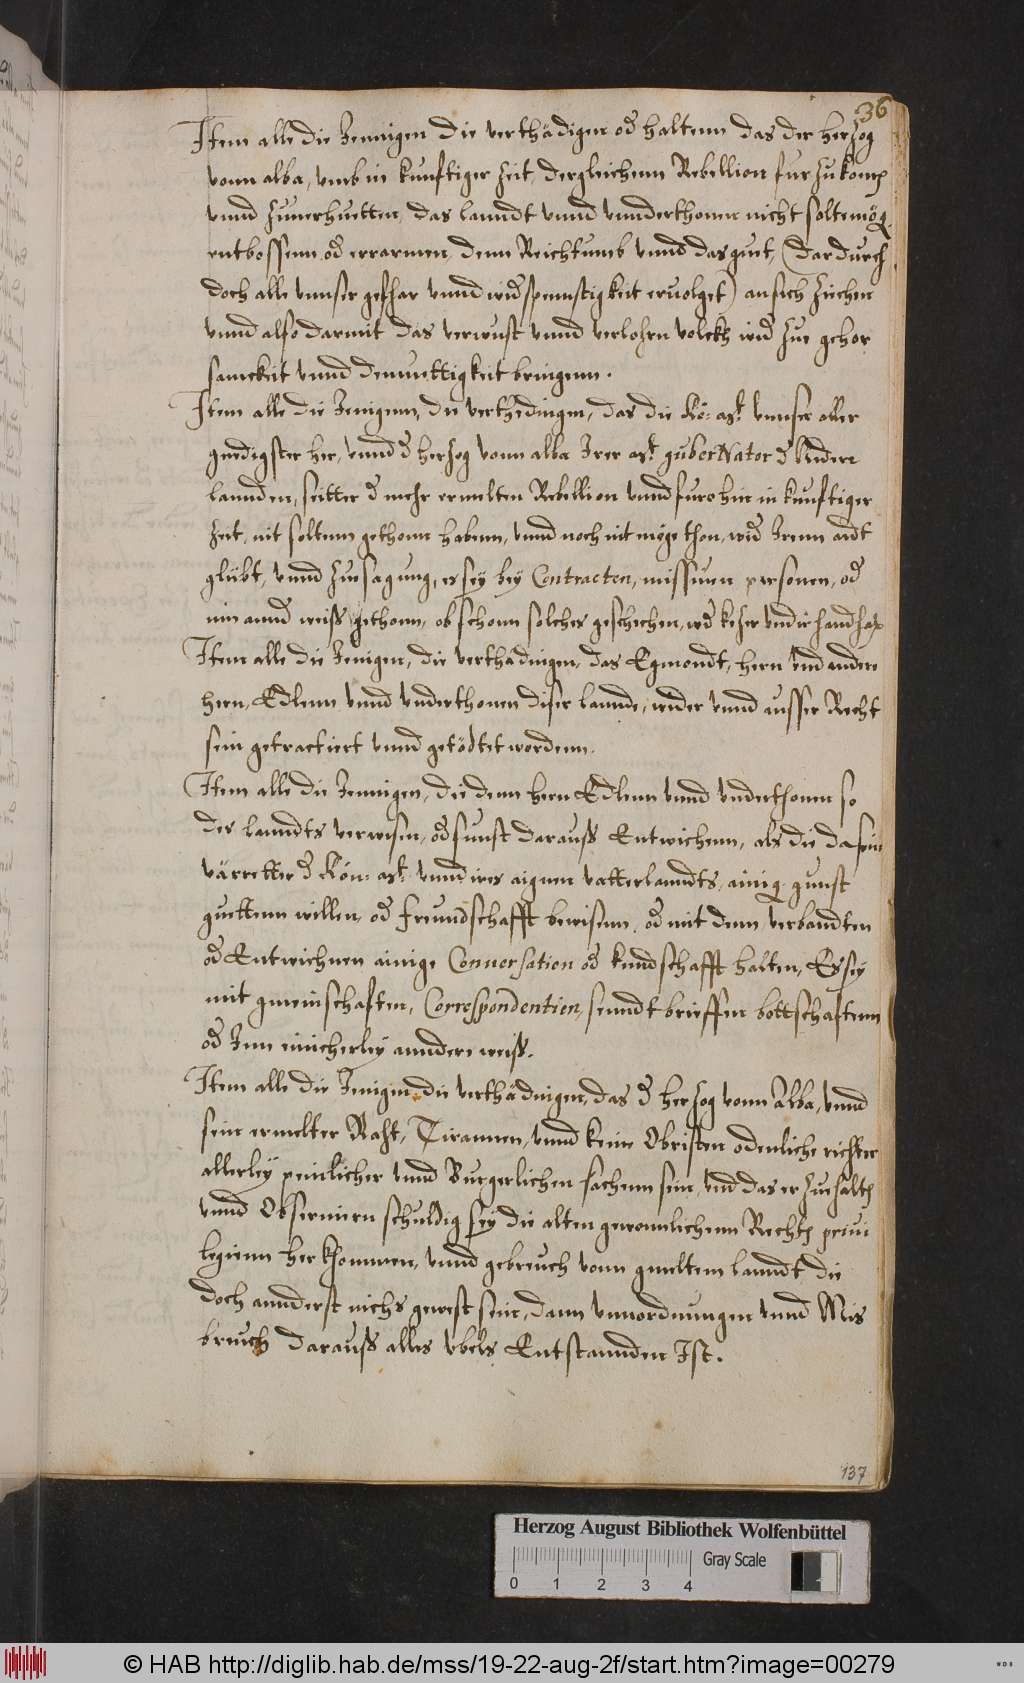 36
Item alle die Jennigen die verthädigen od haltenn das der herzog
vonn alba, vmb in kunftiger zeit, dergleichenn Rebellion fur zu komen
vnnd zuuerhuetten, das lanndt vnnd vnnderthonen nicht solte mög
entbossenn od errarmen, denn Reichtumb vnnd das guet, (dardurch
doch alle vnnser gefhar vnnd widspennstigkeit eruolget) an sich ziehen
vnnd also darmit das verwust vnnd verlohrn volckh wid zue gehor
samckeit vnnd demuettigkeit bringenn.
Item alle die Jenigenn, die verthedingen, das die Kö: Mt: vnnser aller
gnedigster her, vnnd d herzog vonn alba Irer Mt: guberNator d Nidere
lannden, seitter d mehr ermelten Rebellion vnnd furohin in kunftiger
Zeit, nit soltenn gethonn habenn, vnnd noch nit möge thon, wid Irenn aidt
glübt, vnnd zuesagung, es sey bey Contracten, missiuen personen, od
inn annd weiss gethonn, ob schonn solches geschehen,
Item alle die Jenigen, die verthädingen, das Egmondt, hern vnd andere
hern, Edlenn vnnd vnderthonen diser lannde, wider vnnd ausser Recht
sein getractiert vnnd getödtet wordenn.
Item alle die Jennigen, die denn hern Edlenn vnnd vnderthonen so
des lanndts verwisen, od sunst darauss Entwichenn, als die da sein
värretter d Kön: Mt: vnnd ires aignen vatterlanndts, ainig gunst
guettenn willen, od freundschafft bewisenn, od mit denn verbandten
od Entwichnen ainige Conuersation od kundschafft halten, Es sey
mit gmeinschaften, Correspondentien, senndtbrieffen bottschaftenn
od Inn einicherley anndere weiss.
Item alle die Jenigen, die verthädingen, das d herzog vonn Alba, vnnd
sein ermelter Raht, Tirannen, vnnd keine Obristen odenliche richter
allerley peinlicher vnnd Burgerlichen sachenn sein, vnd das er zuehalten
vnnd Obseruiern schuldig sey die alten gewonnlichenn Rechten priui
legienn herkhommen, vnnd gebreuch vonn gmeltem lanndt die
doch annderst nichs gewest sein, dann vnnordnungen vnnd Mis
breuch darauss alles vbels Entstannden Ist.
137
Herzog August Bibliothek Wolfenbüttel
Gray Scale
0 1 2 3 4
© HAB http://diglib.hab.de/mss/19-22-aug-2f/start.htm?image=00279